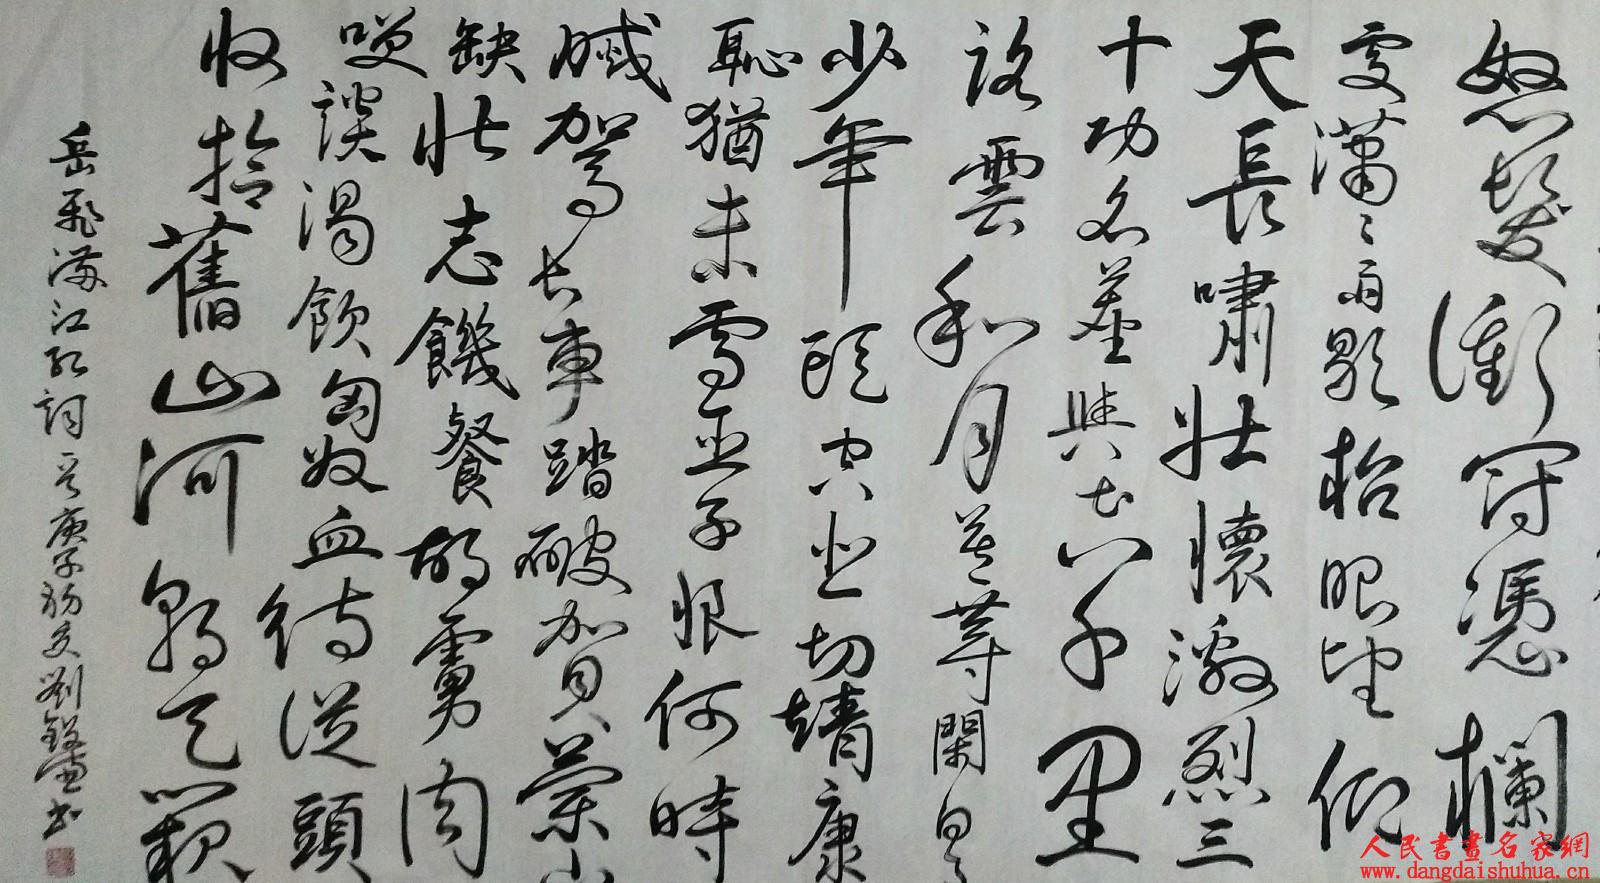 怒髮衝冠憑欄
處瀟〻雨歇抬眼望仰
天長嘯壯懷激烈三
十功名塵與土八千里
路雲和月莫等閑白了
少年頭空悲切靖康
恥猶未雪臣子恨何時
滅駕長車踏破賀蘭山
缺壯志饑餐胡虜肉
笑談渴飲匈奴血待從頭
收拾舊山河朝天闕
岳飛滿江紅詞 庚子初夏劉 書
人民書畫名家網
www.dangdaishuhua.cn